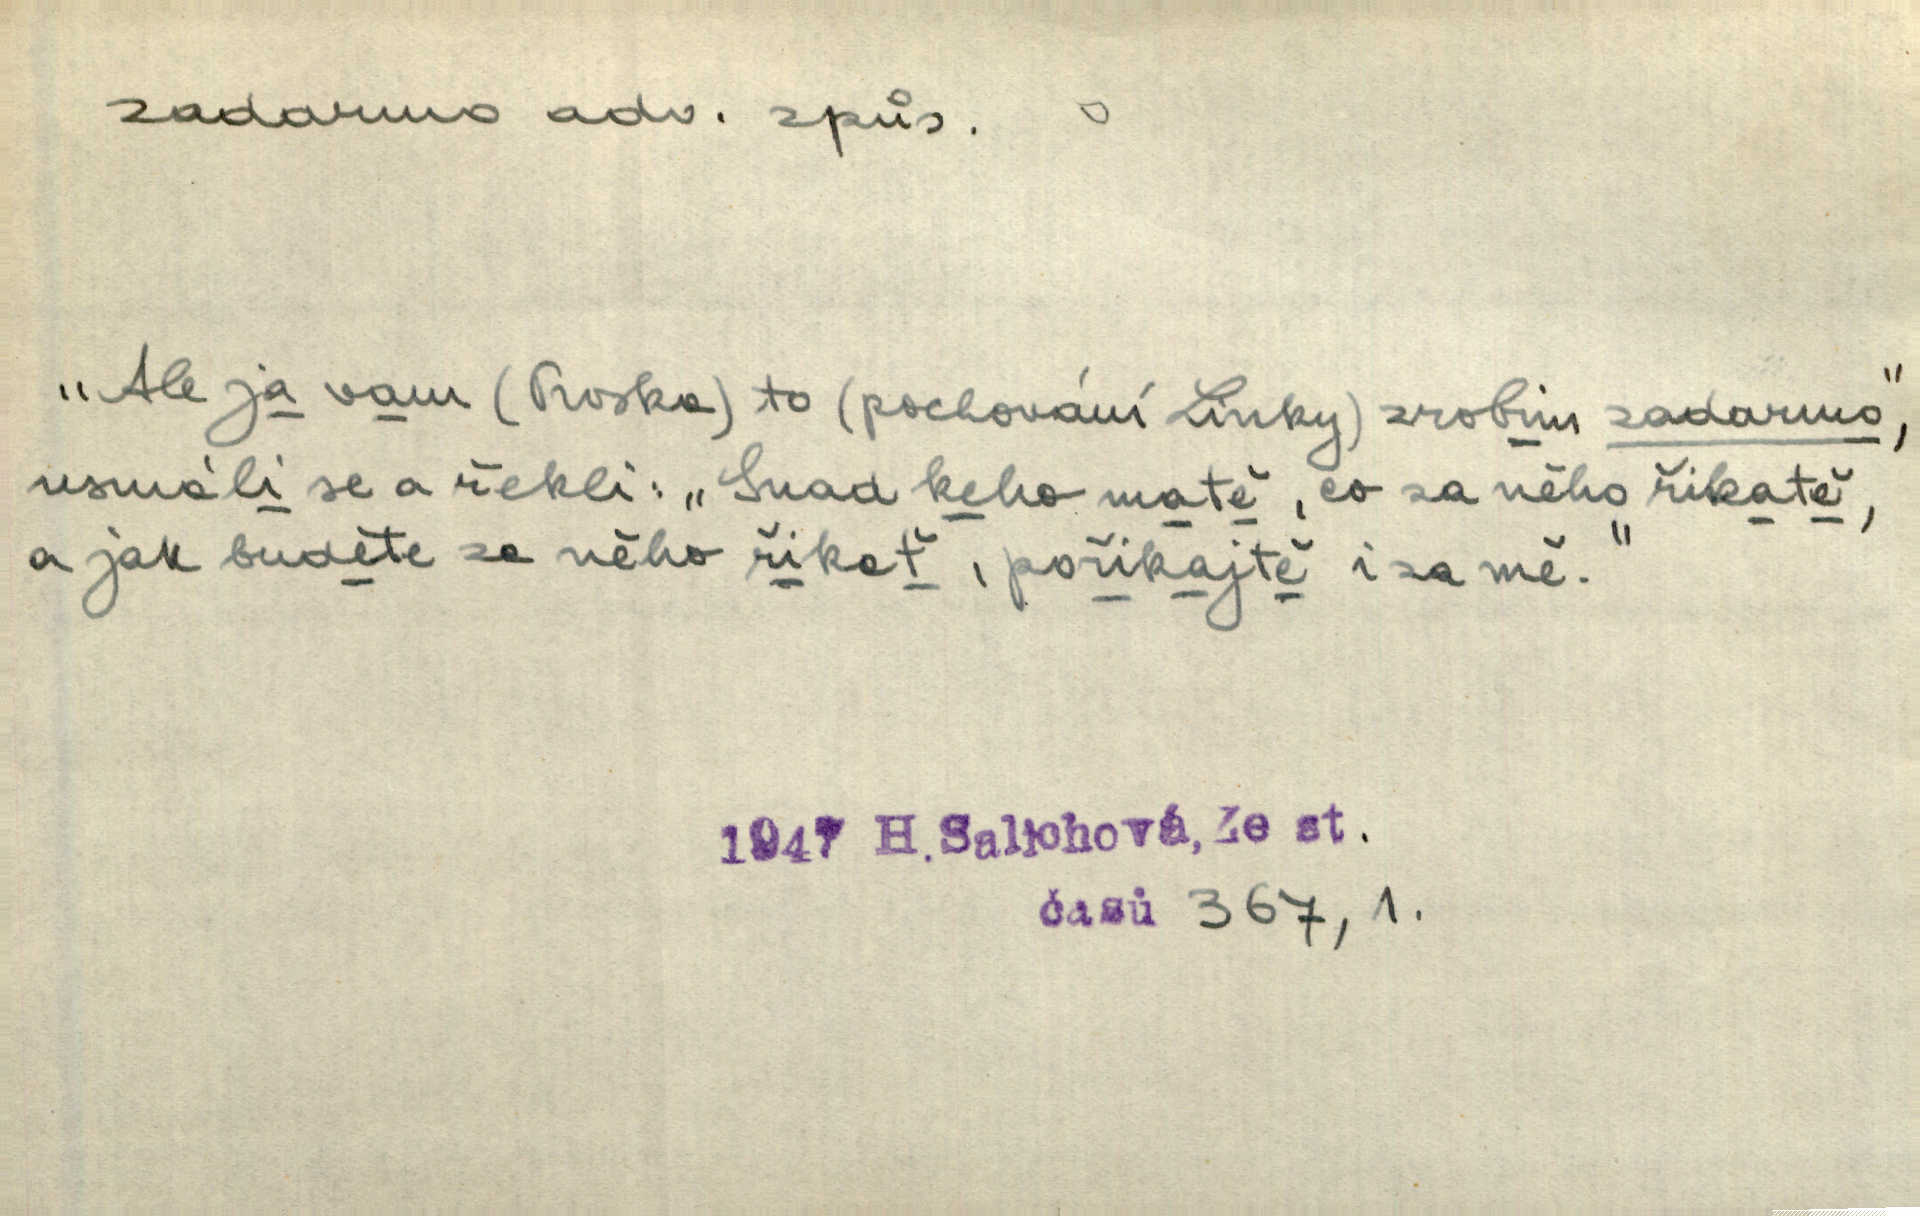 zadarmo adv. způs. o
„Ale ja vam (Hruska) to (pochování Linky) zrobim zadarmo",
usmáli se a řekli: „Snad keho matě, co za něho řikatě,
a jak buděte za něho řikať, pořikajtě i za mě."
1947 H. Salichová, Ze st.
časů 367, 1.